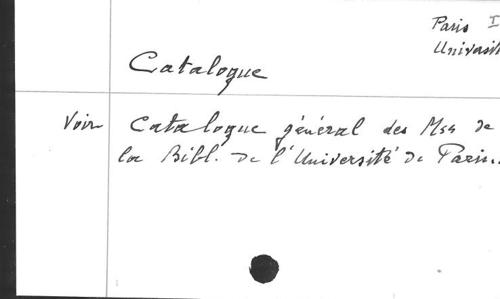 Paris I
Université
Catalogue
Voir Catalogue général des Mss de
la Bibl. de l'Université de Paris.